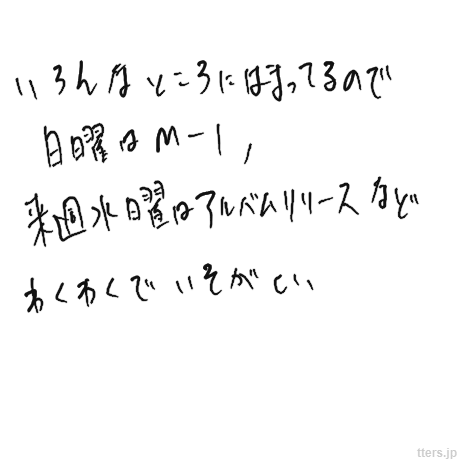 いろんなところにはまってるので
日曜はM-1，
来週水曜はアルバムリリースなど
わくわくでいそがしい
tters.jp